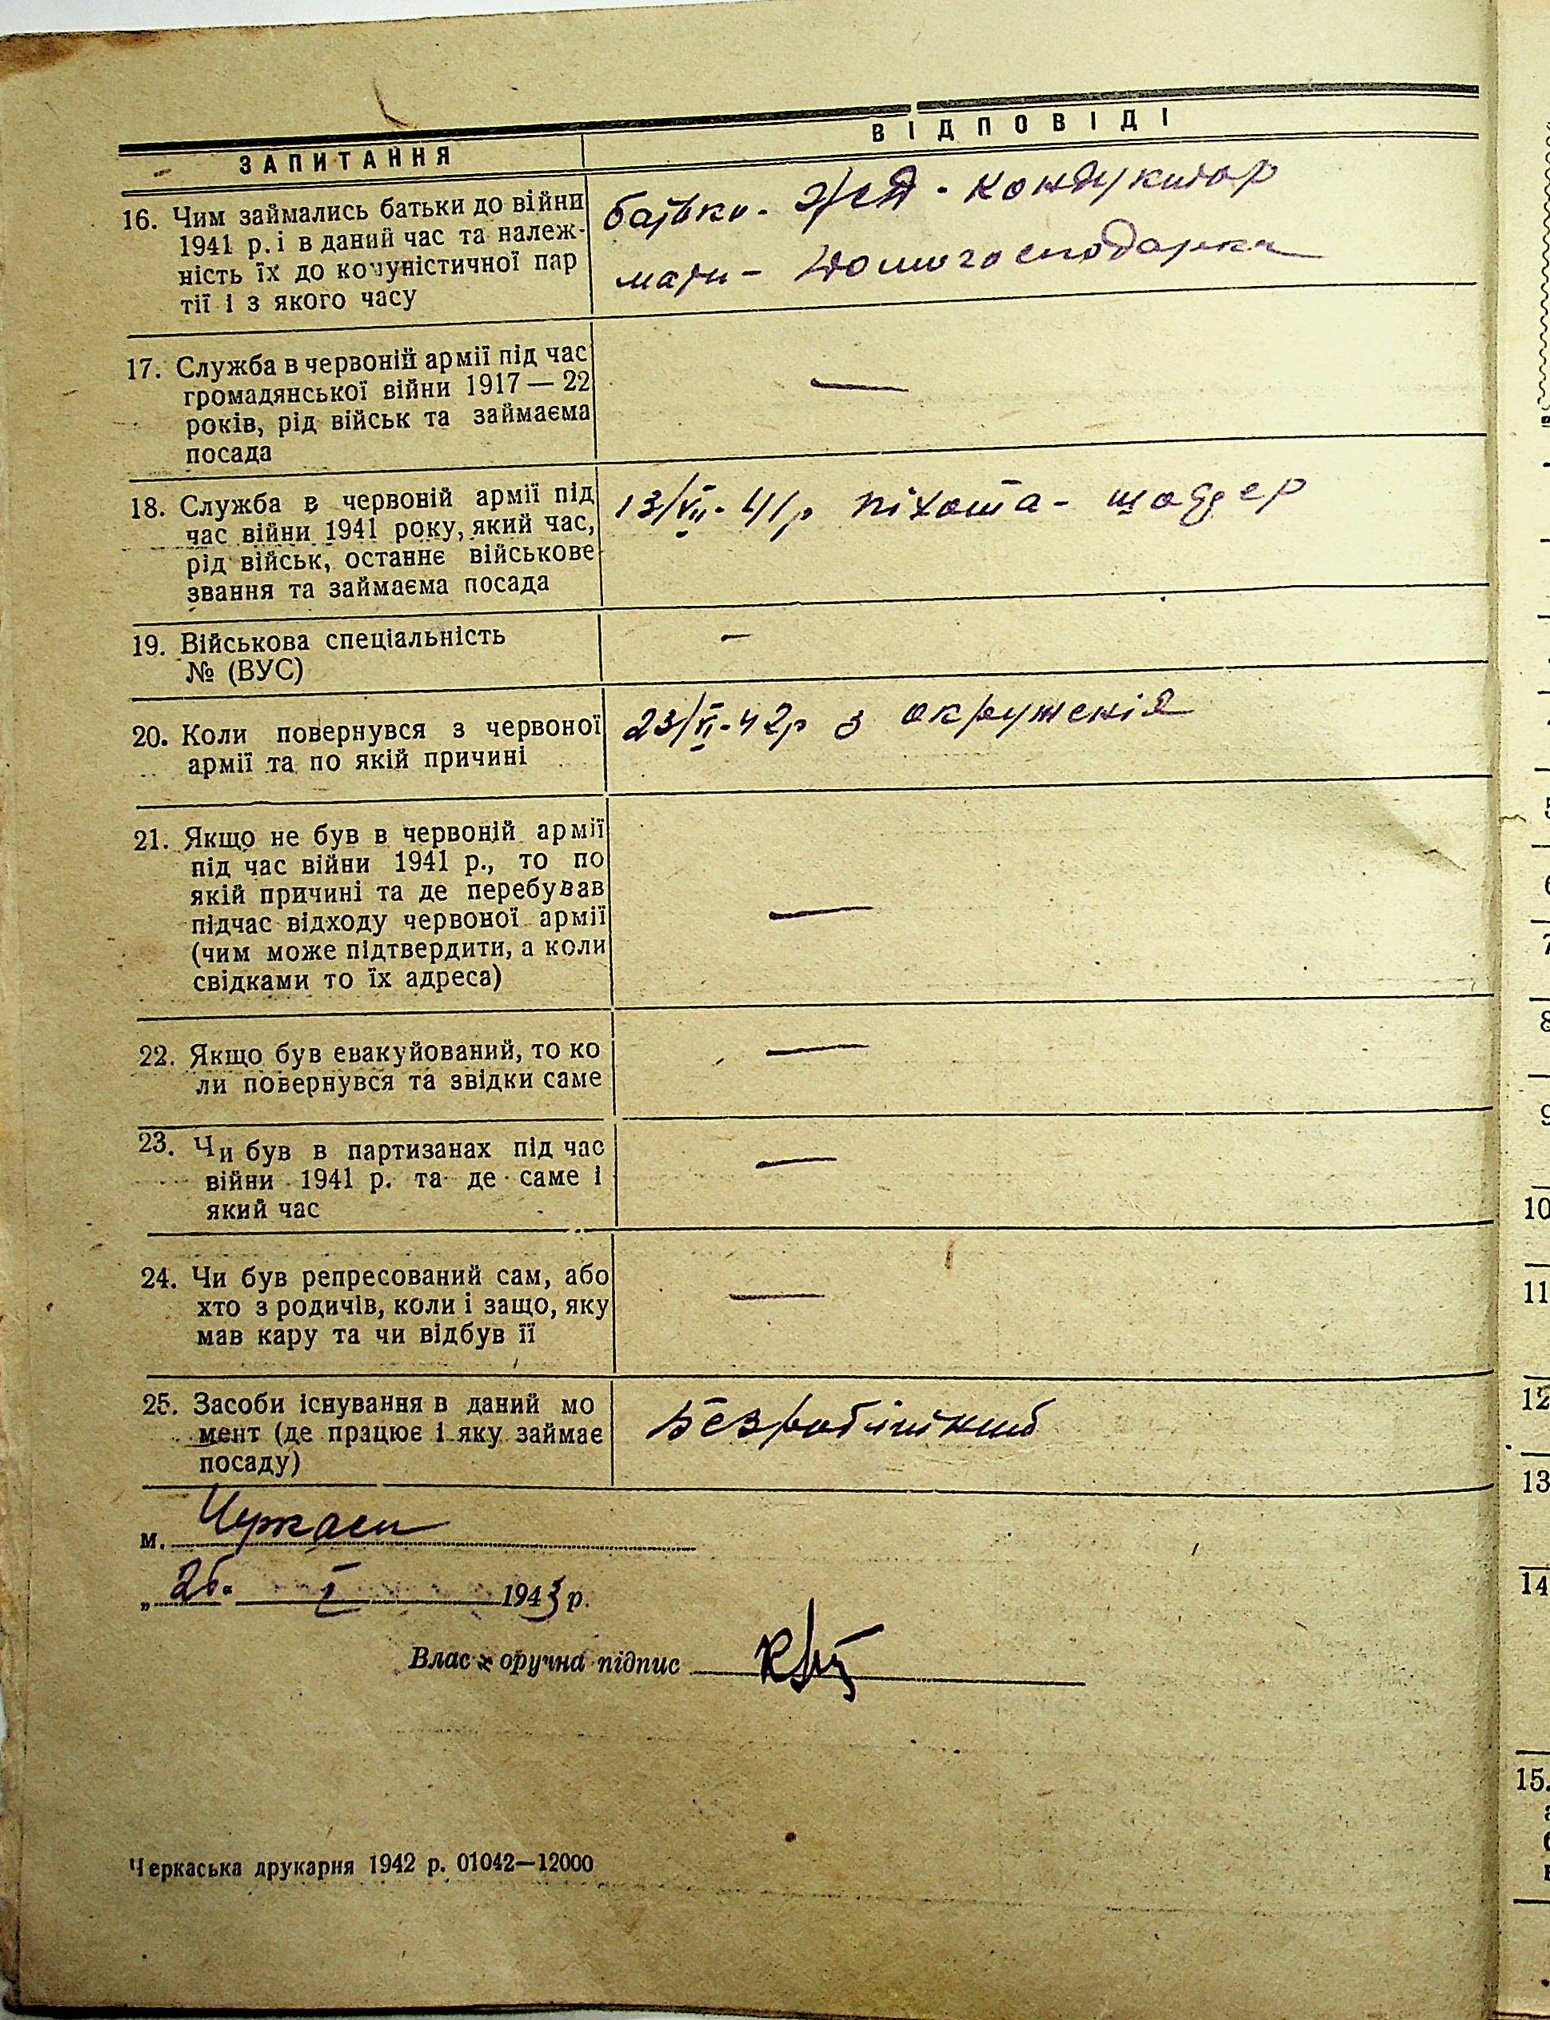 ЗАПИТАННЯ
ВІДПОВІДІ
16. Чим займались батьки до війни
1941 р. і в даний час та належ-
ність їх до комуністичної пар
тії і з якого часу
батько - жд - кондуктор
мати - домогосподарка
17. Служба в червоній армії під час
громадянської війни 1917 — 22
років, рід військ та займаєма
посада
—
18. Служба в червоній армії під
час війни 1941 року, який час,
рід військ, останнє військове
звання та займаєма посада
13/VII - 41р піхота -
19. Військова спеціальність
№ (ВУС)
—
20. Коли повернувся з червоної
армії та по якій причині
23/VI - 42р з окруженія
21. Якщо не був в червоній армії
під час війни 1941 р., то по
якій причині та де перебував
підчас відходу червоної армії
(чим може підтвердити, а коли
свідками то їх адреса)
—
22. Якщо був евакуйований, то ко
ли повернувся та звідки саме
—
23. Чи був в партизанах під час
війни 1941 р. та де саме і
який час
—
24. Чи був репресований сам, або
хто з родичів, коли і защо, яку
мав кару та чи відбув її
—
25. Засоби існування в даний мо
мент (де працює і яку займає
посаду)
Безробітний
м. Черкаси
„26" I 1943 р.
Власноручна підпис
Черкаська друкарня 1942 р. 01042—12000
5
6
7
8
9
10
11
12
13
14
15.